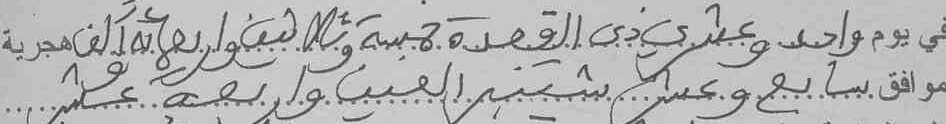 في يوم واحد وعشري ذي القعدة خمسة وثلاثين واربعمائة وألف هجرية
موافق سابع وعشر شتنبر الفين واربعة عشر